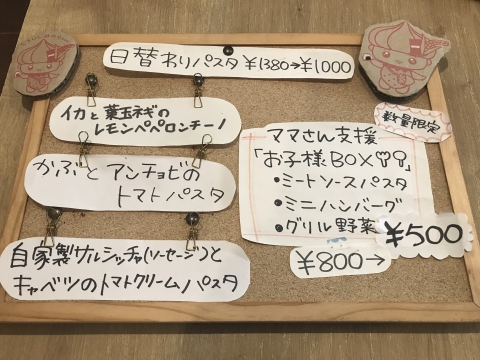 日替わりパスタ ¥1380→¥1000
イカと葉玉ネギの
レモンペペロンチーノ
かぶとアンチョビの
トマトパスタ
自家製サルシッチャ(ソーセージ)と
キャベツのトマトクリームパスタ
数量限定
ママさん支援
「お子様BOX」
・ミートソースパスタ
・ミニハンバーグ
・グリル野菜
¥800→
¥500